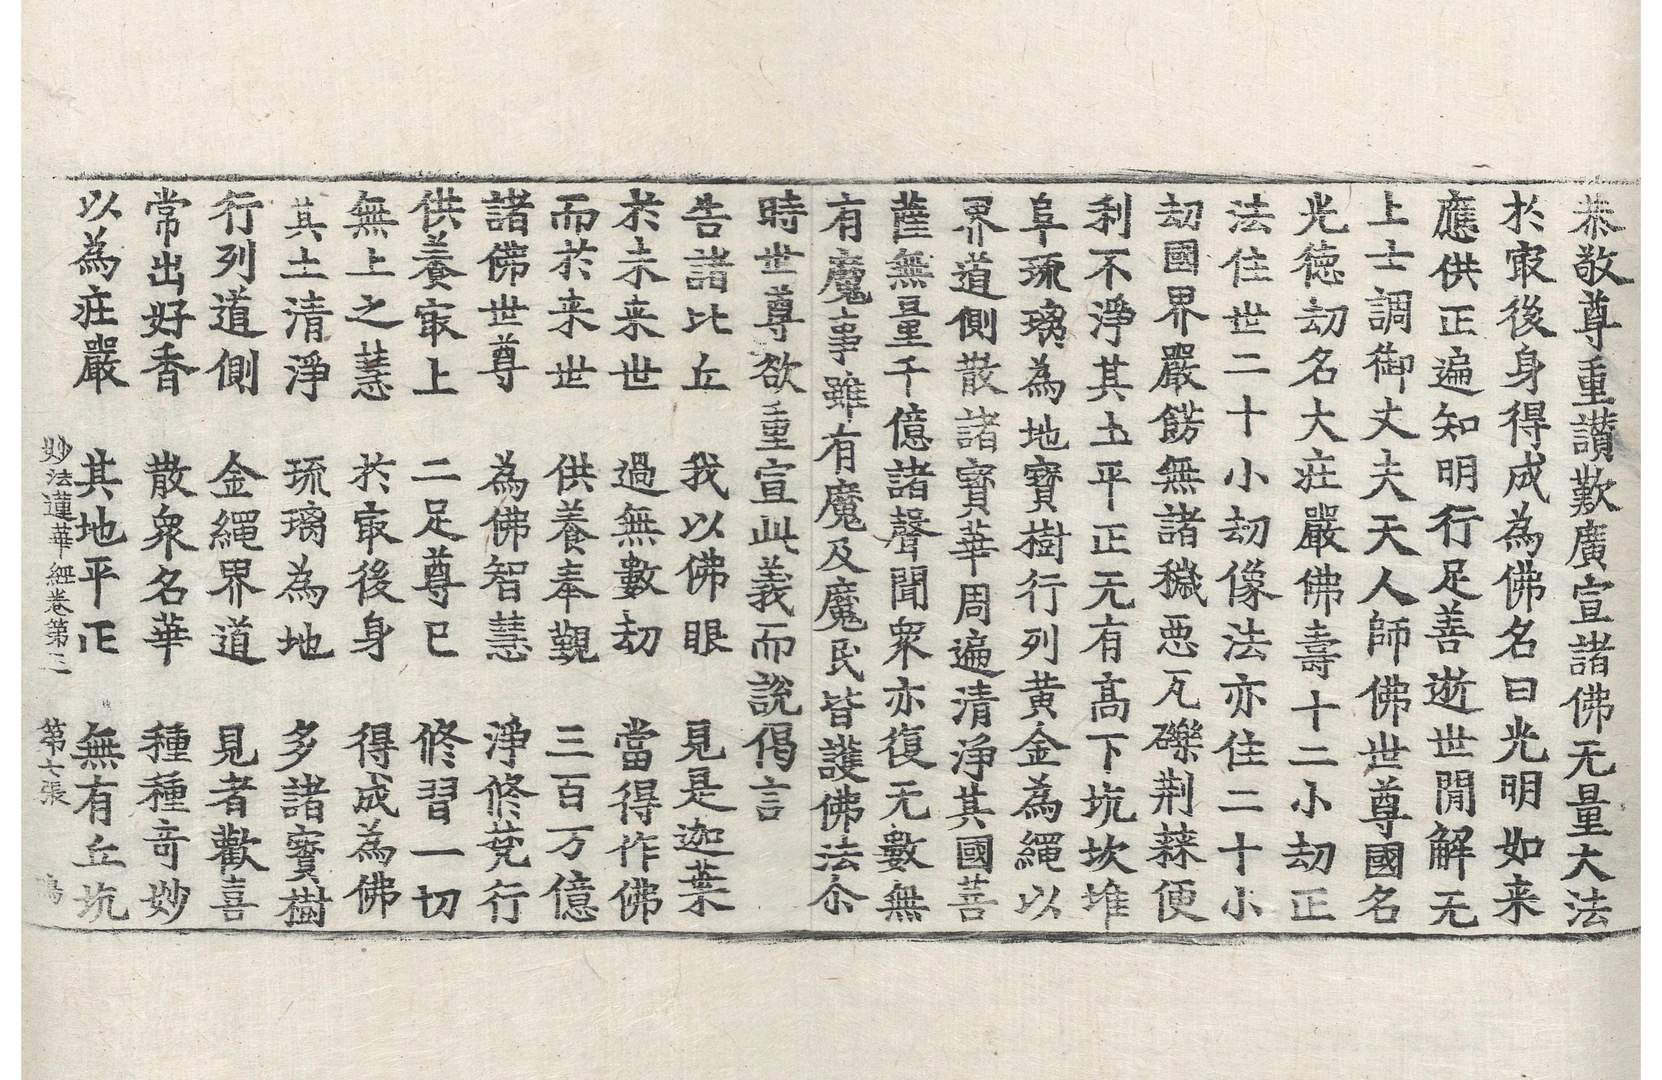 恭敬尊重讃歎廣宣諸佛无量大法
扵㝡後身得成為佛名曰光明如来
應供正遍知明行足善逝世閒解无
上士調御丈夫天人師佛世尊國名
光徳劫名大莊嚴佛壽十二小劫正
法住世二十小劫像法亦住二十小
劫國界嚴餝無諸穢悪瓦礫荆蕀便
利不淨其圡平正无有髙下坑坎堆
阜琉璃為地寶樹行列黄金為繩以
界道側散諸寶華周遍清淨其國菩
薩無量千億諸聲聞衆亦復无數無
有魔事雖有魔及魔民皆護佛法尒
時世尊欲重宣此義而說偈言
告諸比丘 我以佛眼 見是迦葉
扵未来世 過無數劫 當得作佛
而扵来世 供養奉覲 三百万億
諸佛世尊 為佛智慧 淨修梵行
供養㝡上 二足尊已 修習一切
無上之慧 扵㝡後身 得成為佛
其土清淨 琉璃為地 多諸寶樹
行列道側 金繩界道 見者歡喜
常出好香 散衆名華 種種奇妙
以為莊嚴 其地平正 無有丘坑
妙法蓮華經卷第三 第七張